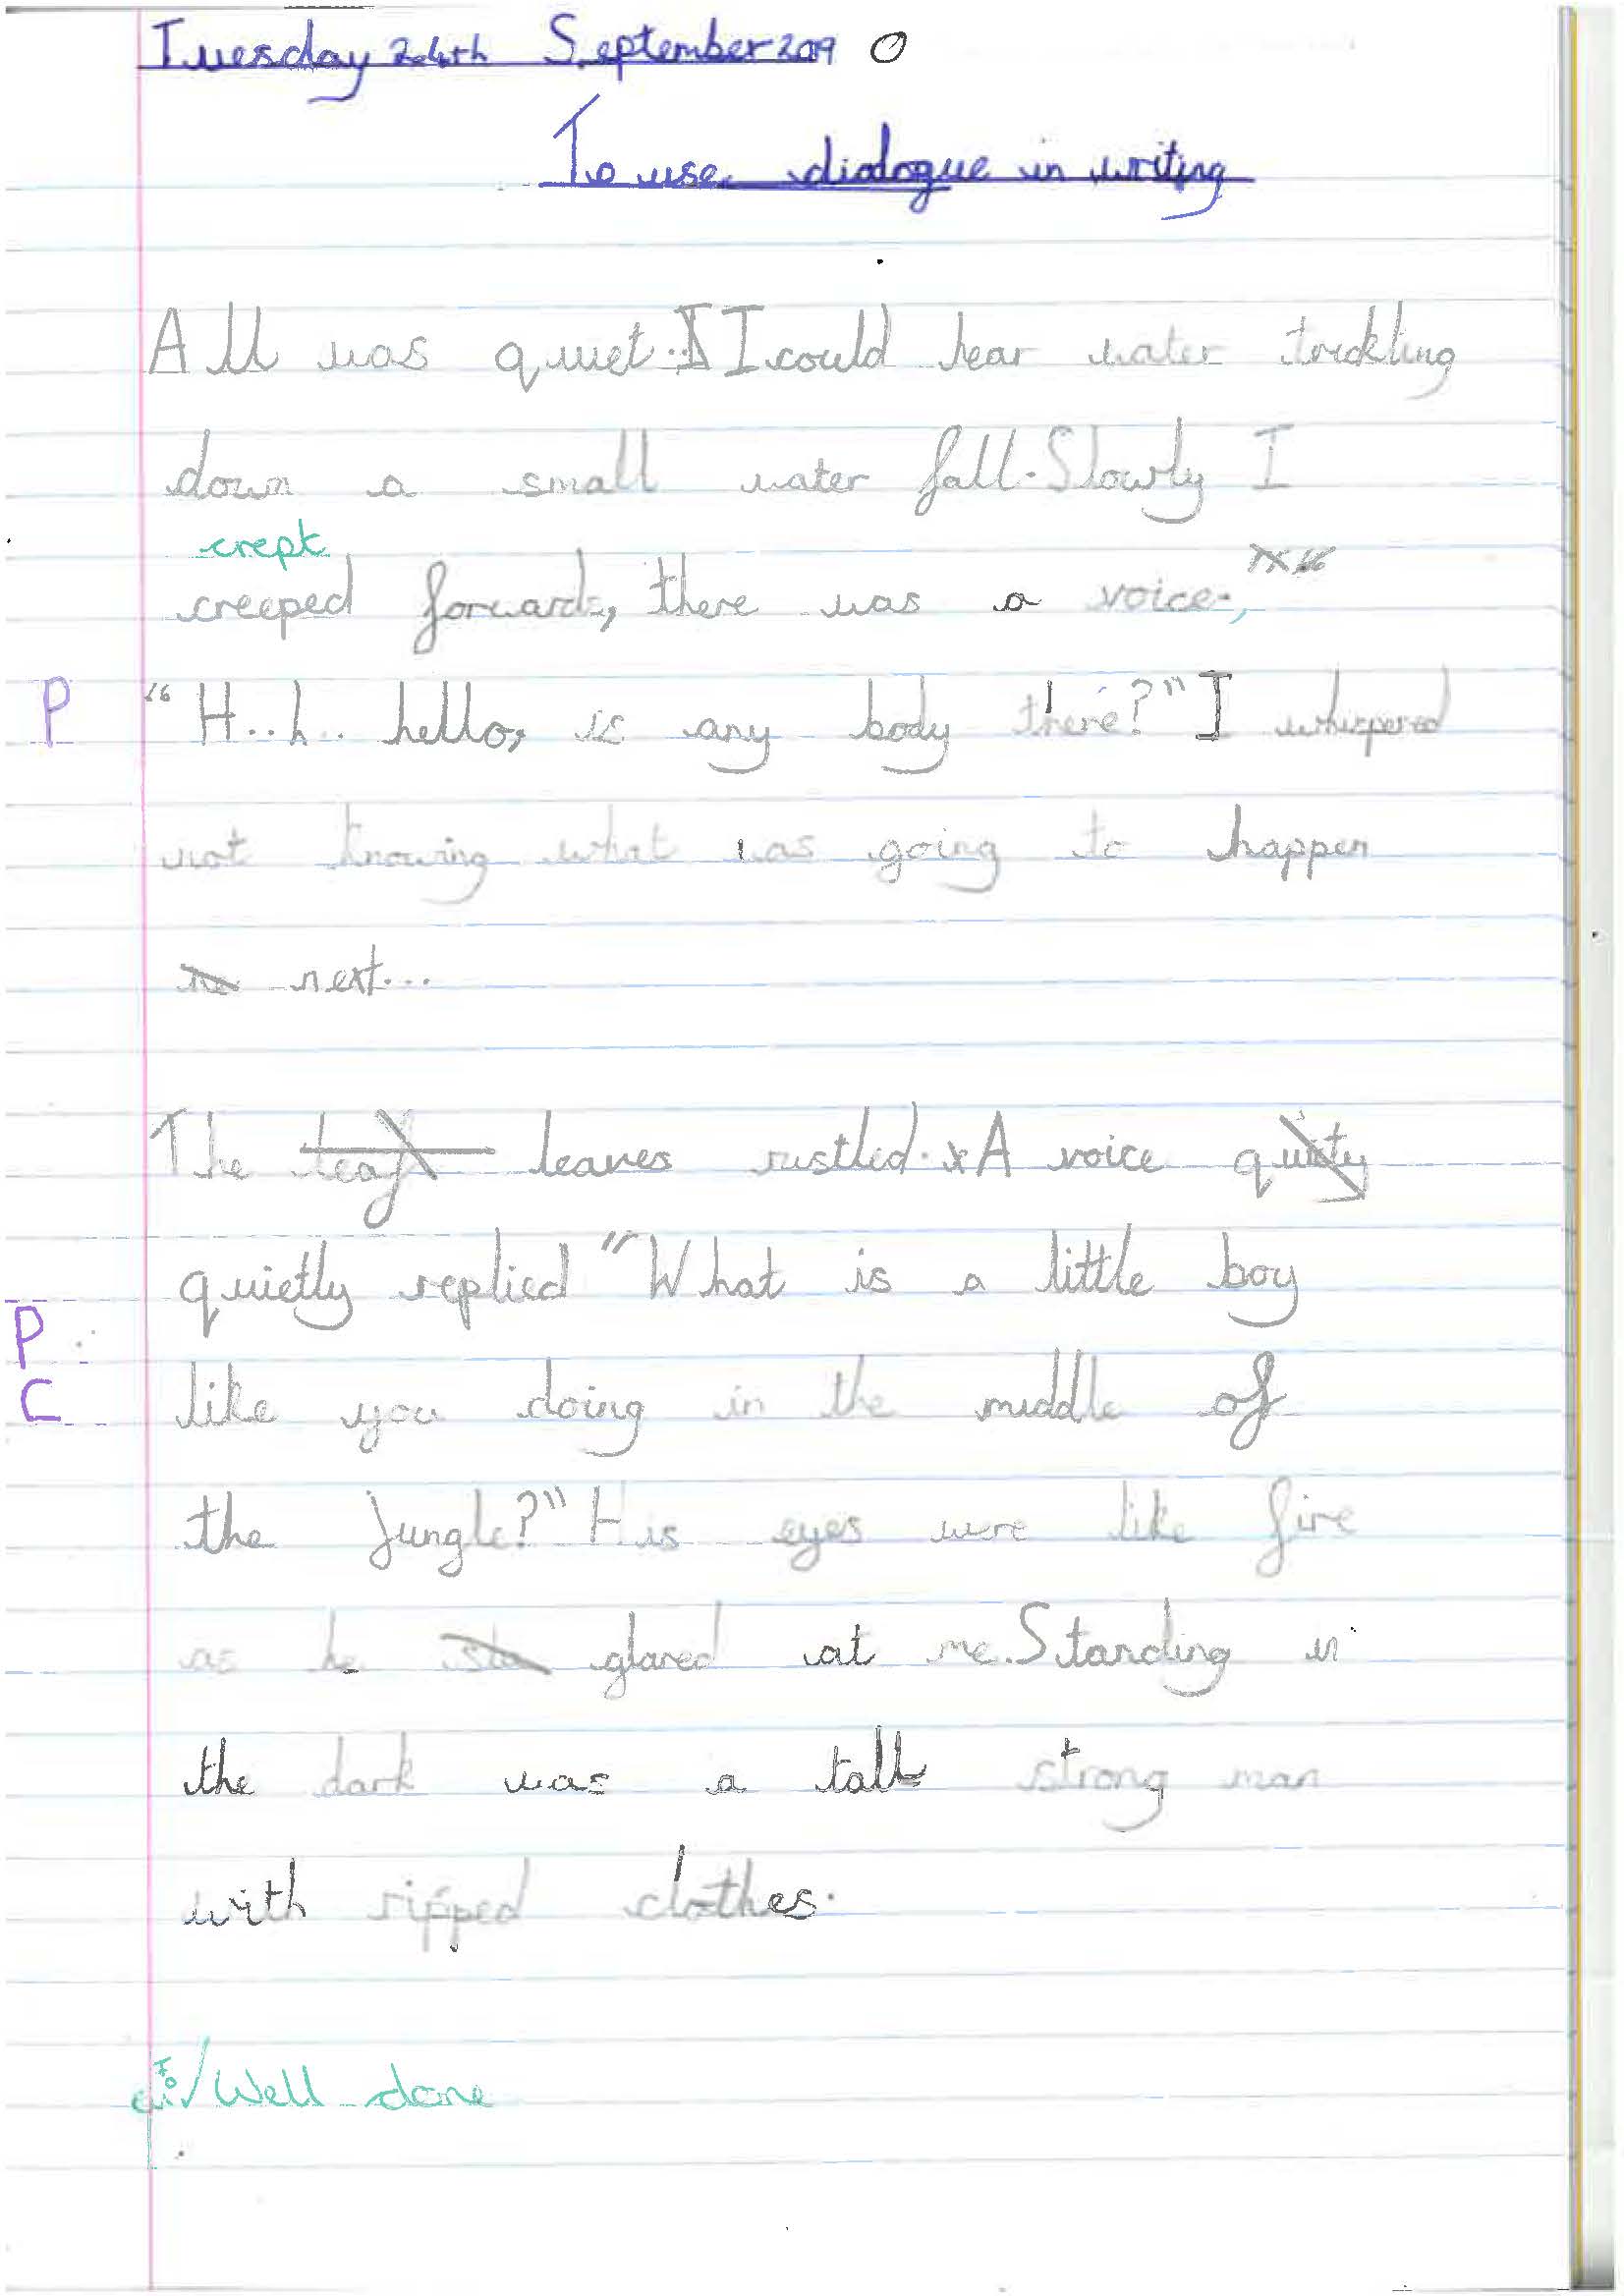 Tuesday 24th September 2019 O
To use dialogue in writing
All was quiet. I could hear water trickling
down a small water fall. Slowly I
crept
creeped forwards, there was a voice.,
P "H..h.. hello, is any body there?" I whispered
not knowing what was going to happen
ne next...
The leaf leaves rustled. A voice quity
quietly replied "What is a little boy
P
C like you doing in the middle of
the jungle?" His eyes were like fire
as he sta glared at me. Standing in
the dark was a tall strong man
with ripped clothes.
Well done